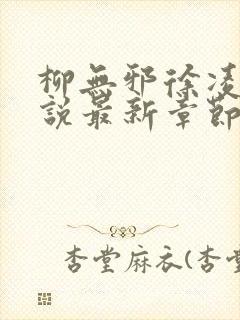 柳無邪徐凌
說最新章節
杏堂麻衣(杏堂